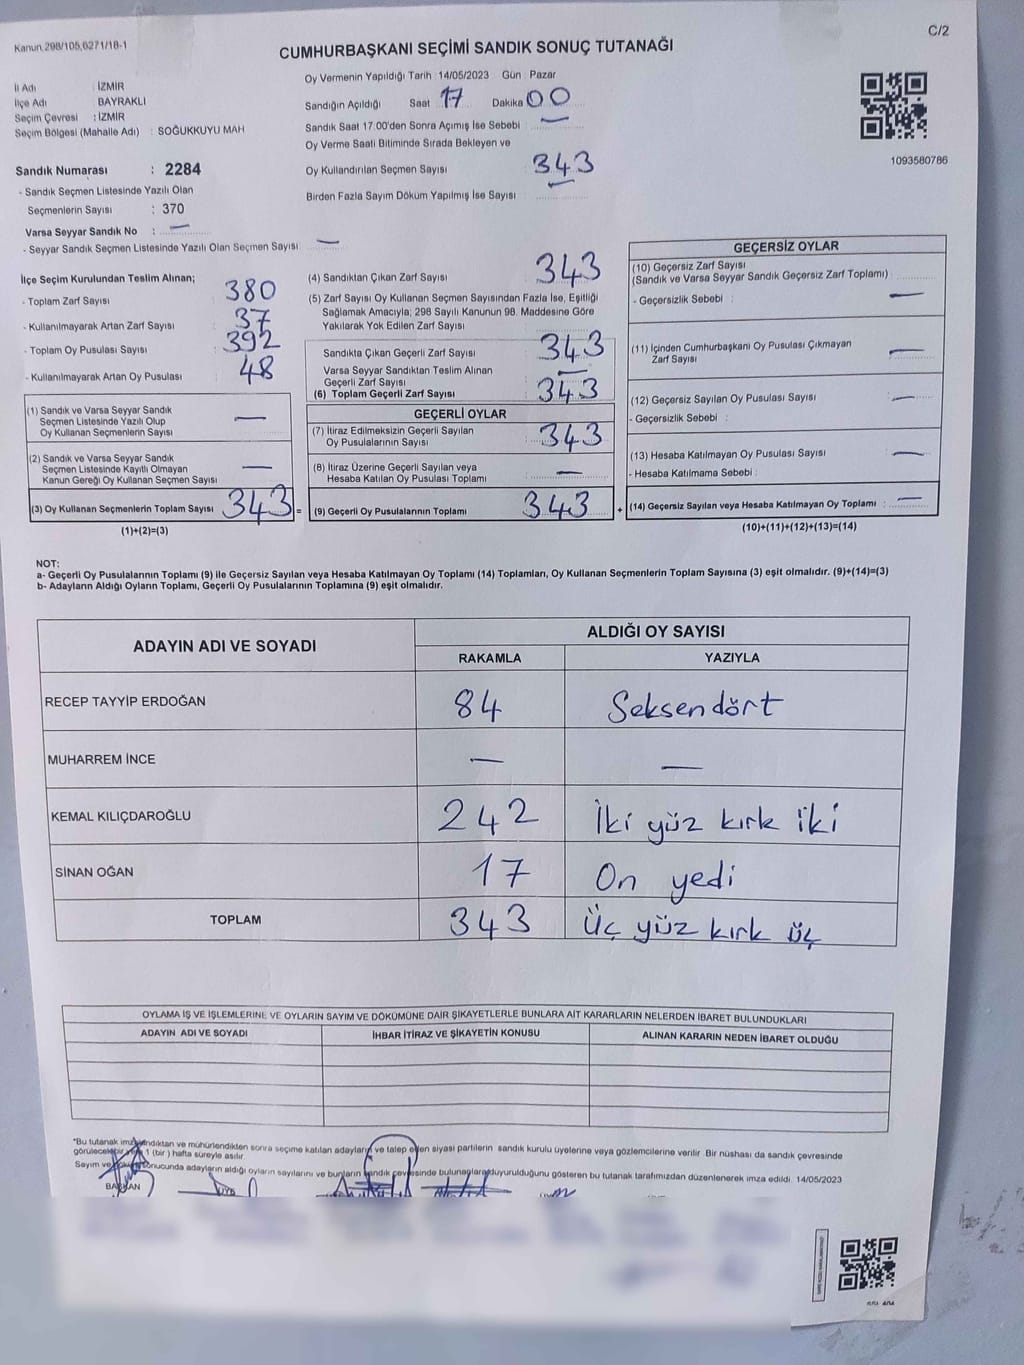 Kanun 298/105,6271/18-1
C/2
CUMHURBAŞKANI SEÇİMİ SANDIK SONUÇ TUTANAĞI
İl Adı : İZMİR
İlçe Adı : BAYRAKLI
Seçim Çevresi : İZMİR
Seçim Bölgesi (Mahalle Adı) : SOĞUKKUYU MAH
Sandık Numarası : 2284
- Sandık Seçmen Listesinde Yazılı Olan
Seçmenlerin Sayısı : 370
Varsa Seyyar Sandık No : —
- Seyyar Sandık Seçmen Listesinde Yazılı Olan Seçmen Sayısı —
Oy Vermenin Yapıldığı Tarih : 14/05/2023 Gün : Pazar
Sandığın Açıldığı Saat 17 Dakika 00
Sandık Saat 17:00'den Sonra Açımış İse Sebebi —
Oy Verme Saati Bitiminde Sırada Bekleyen ve
Oy Kullandırılan Seçmen Sayısı : 343
Birden Fazla Sayım Döküm Yapılmış İse Sayısı : —
1093580786
İlçe Seçim Kurulundan Teslim Alınan;
- Toplam Zarf Sayısı : 380
- Kullanılmayarak Artan Zarf Sayısı : 37
- Toplam Oy Pusulası Sayısı : 392
- Kullanılmayarak Artan Oy Pusulası : 48
(1) Sandık ve Varsa Seyyar Sandık
Seçmen Listesinde Yazılı Olup
Oy Kullanan Seçmenlerin Sayısı —
(2) Sandık ve Varsa Seyyar Sandık
Seçmen Listesinde Kayıtlı Olmayan
Kanun Gereği Oy Kullanan Seçmen Sayısı —
(3) Oy Kullanan Seçmenlerin Toplam Sayısı 343 =
(1)+(2)=(3)
(4) Sandıktan Çıkan Zarf Sayısı : 343
(5) Zarf Sayısı Oy Kullanan Seçmen Sayısından Fazla İse, Eşitliği
Sağlamak Amacıyla; 298 Sayılı Kanunun 98. Maddesine Göre
Yakılarak Yok Edilen Zarf Sayısı :
Sandıkta Çıkan Geçerli Zarf Sayısı : 343
Varsa Seyyar Sandıktan Teslim Alınan
Geçerli Zarf Sayısı : —
(6) Toplam Geçerli Zarf Sayısı : 343
GEÇERLİ OYLAR
(7) İtiraz Edilmeksizin Geçerli Sayılan
Oy Pusulalarının Sayısı : 343
(8) İtiraz Üzerine Geçerli Sayılan veya
Hesaba Katılan Oy Pusulası Toplamı : —
(9) Geçerli Oy Pusulalarının Toplamı : 343 +
GEÇERSİZ OYLAR
(10) Geçersiz Zarf Sayısı
(Sandık ve Varsa Seyyar Sandık Geçersiz Zarf Toplamı)
- Geçersizlik Sebebi : —
(11) İçinden Cumhurbaşkanı Oy Pusulası Çıkmayan
Zarf Sayısı —
(12) Geçersiz Sayılan Oy Pusulası Sayısı —
- Geçersizlik Sebebi :
(13) Hesaba Katılmayan Oy Pusulası Sayısı —
- Hesaba Katılmama Sebebi :
(14) Geçersiz Sayılan veya Hesaba Katılmayan Oy Toplamı : —
(10)+(11)+(12)+(13)=(14)
NOT:
a- Geçerli Oy Pusulalarının Toplamı (9) ile Geçersiz Sayılan veya Hesaba Katılmayan Oy Toplamı (14) Toplamları, Oy Kullanan Seçmenlerin Toplam Sayısına (3) eşit olmalıdır. (9)+(14)=(3)
b- Adayların Aldığı Oyların Toplamı, Geçerli Oy Pusulalarının Toplamına (9) eşit olmalıdır.
ADAYIN ADI VE SOYADI
ALDIĞI OY SAYISI
RAKAMLA YAZIYLA
RECEP TAYYİP ERDOĞAN 84 Seksendört
MUHARREM İNCE — —
KEMAL KILIÇDAROĞLU 242 İki yüz kırk iki
SİNAN OĞAN 17 On yedi
TOPLAM 343 Üç yüz kırk üç
OYLAMA İŞ VE İŞLEMLERİNE VE OYLARIN SAYIM VE DÖKÜMÜNE DAİR ŞİKAYETLERLE BUNLARA AİT KARARLARIN NELERDEN İBARET BULUNDUKLARI
ADAYIN ADI VE SOYADI İHBAR İTİRAZ VE ŞİKAYETİN KONUSU ALINAN KARARIN NEDEN İBARET OLDUĞU
"Bu tutanak imzalandıktan ve mühürlendikten sonra seçime katılan adayların ve talep eden siyasi partilerin sandık kurulu üyelerine veya gözlemcilerine verilir. Bir nüshası da sandık çevresinde
görülecek bir yere 1 (bir) hafta süreyle asılır.
Sayım ve döküm sonucunda adayların aldığı oyların sayılarını ve bunların sandık çevresinde bulunanlara duyurulduğunu gösteren bu tutanak tarafımızdan düzenlenerek imza edildi. 14/05/2023
BAŞKAN